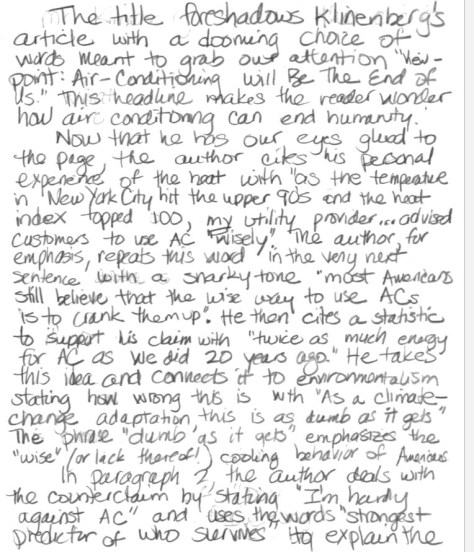 The title foreshadows Klinenberg's
article with a dooming choice of
words meant to grab our attention "View-
point: Air-Conditioning will Be The End of
Us." This headline makes the reader wonder
how air conditioning can end humanity.
Now that he has our eyes glued to
the page, the author cites his personal
experience of the heat with "as the temperature
in New York City hit the upper 90s and the heat
index topped 100, my utility provider... advised
customers to use AC "wisely". The author, for
emphasis, repeats this word in the very next
sentence with a snarky tone "most Americans
still believe that the wise way to use ACs
is to crank them up". He then cites a statistic
to support his claim with "twice as much energy
for AC as we did 20 years ago." He takes
this idea and connects it to environmentalism
stating how wrong this is with "As a climate-
change adaptation, this is as dumb as it gets"
The phrase "dumb as it gets" emphasizes the
"wise" (or lack thereof!) cooling behavior of Americans
In paragraph 2, the author deals with
the counterclaim by stating "I'm hardly
against AC" and uses the words "strongest
predictor of who survives" to explain the